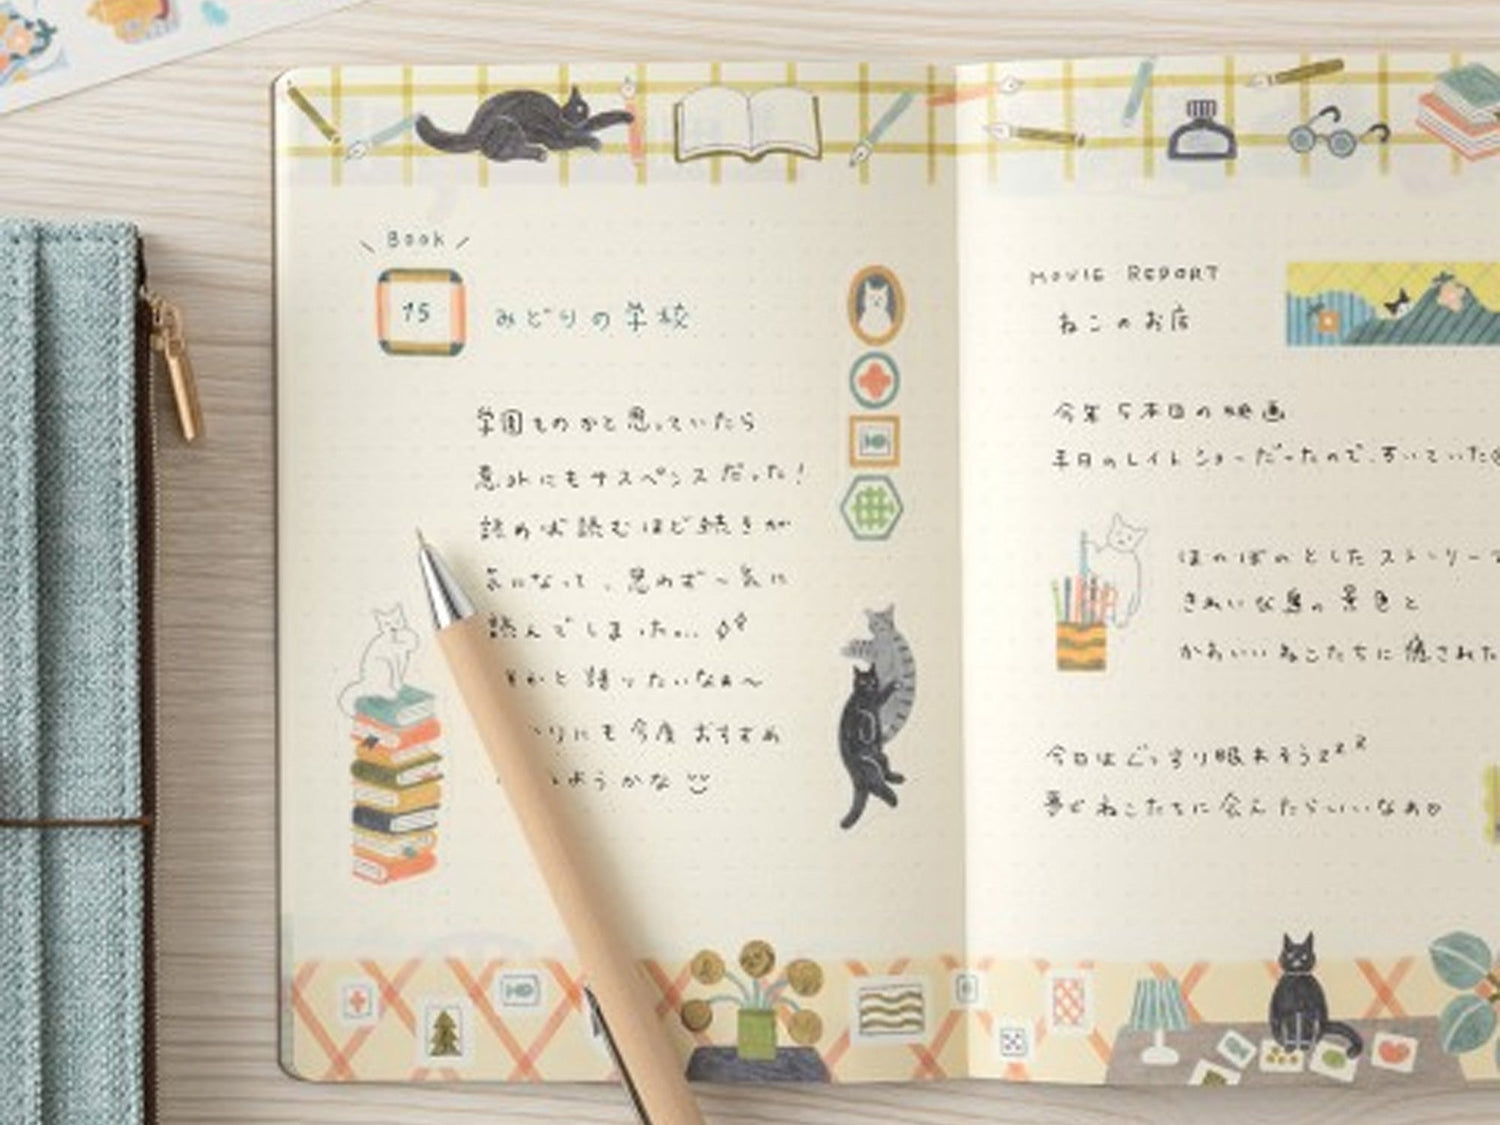 Book
15
みどりの学校
学園ものかと思っていたら
意外にもサスペンスだった!
読めば読むほど続きが
気になって、思わず一気に
読んでしまった...
かと語りたいなぁ〜
りにも今度おすすめ
ようかな
MOVIE REPORT
ねこのお店
今年5本目の映画
平日のレイトショーだったので、すいていた
ほのぼのとしたストーリーで
きれいな島の景色と
かわいいねこたちに癒された
今日はぐっすり眠れそうzzz
夢でねこたちに会えたらいいなぁ